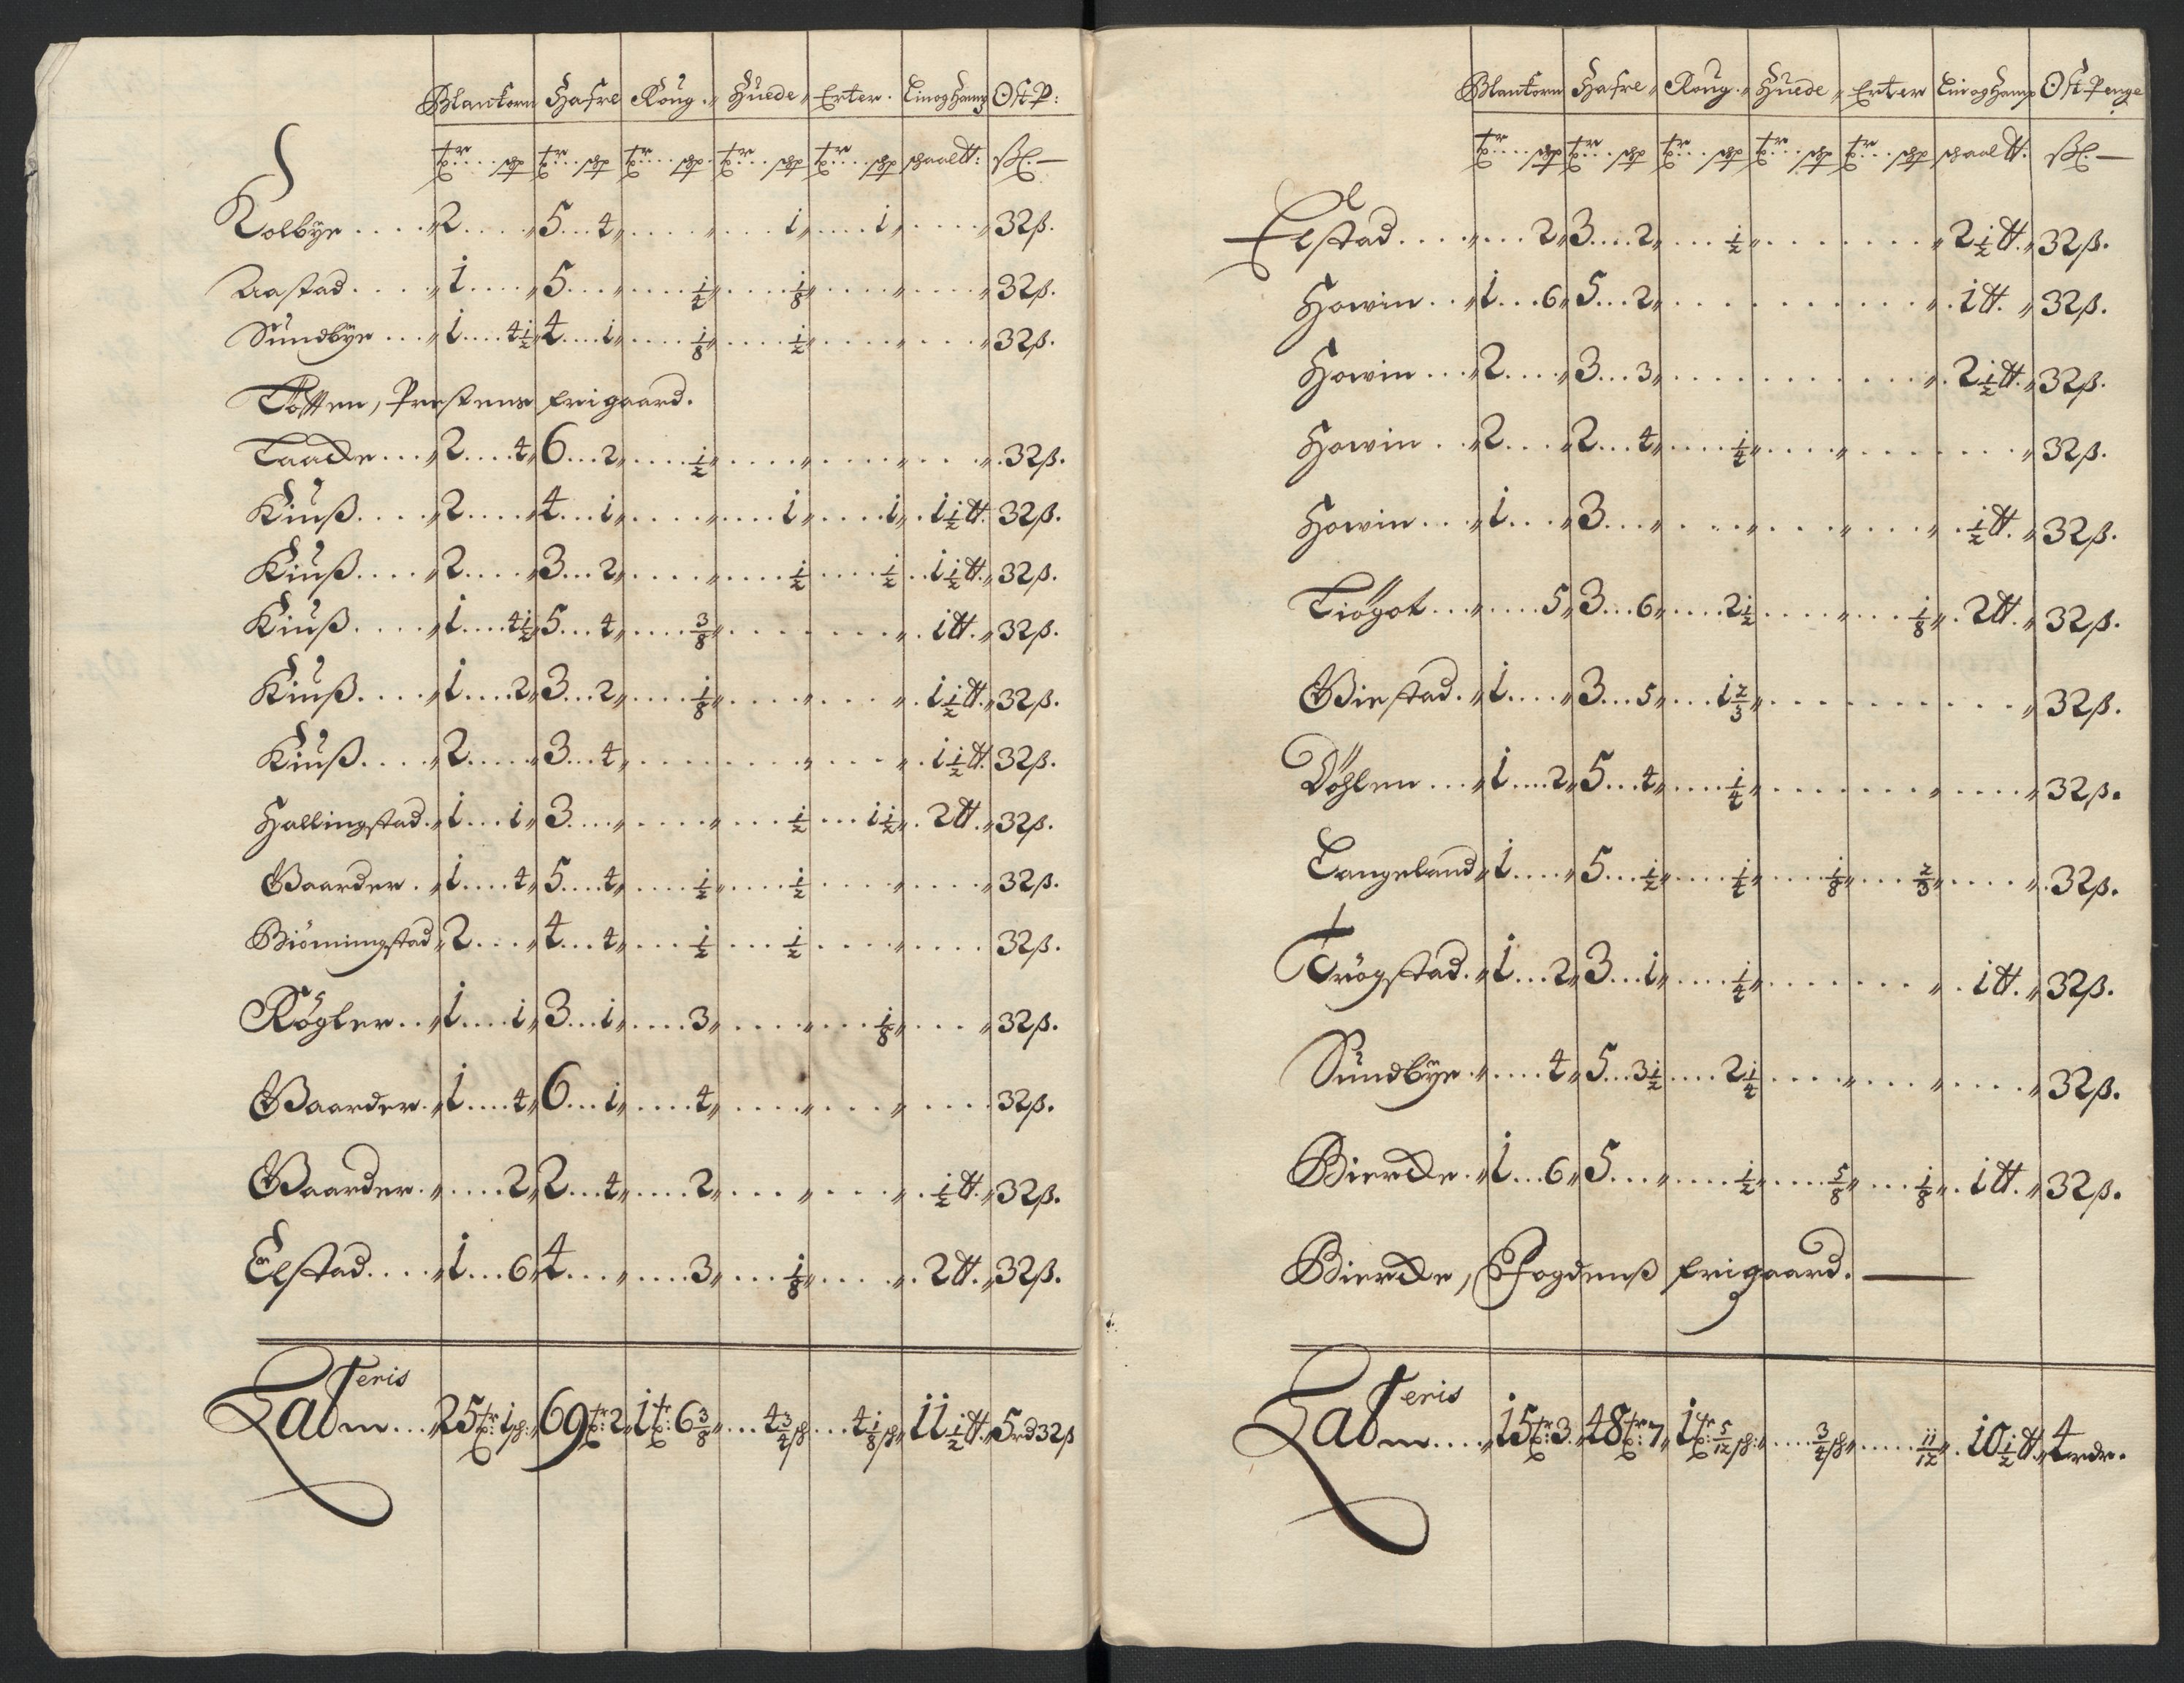 Blantkorn Hafre Roug. Huede Erter. Lin og Hamp Ost P:
Tr. .... skp Tr. ... skp Tr. .... skp. Tr. ... skp Tr. ... skp schaal ℔: ß. —
Kolbye .... 2 ..... 5 ... 4 ....... 1 .... 1 ..... 32ß.
Aastad .... 1 .... 5 ........ 1/4 .... 1/8 ........ 32ß.
Sundbye ... 1 .... 4 1/2 4 .... 1 ..... 1/8 .... 1/2 ........ 32ß.
Totten, Prestens frigaard.
Taade ... 2 .... 4 6 ... 2 ..... 1/2 ............ 32ß.
Kiuß .... 2 .... 4 ... 1 ........ 1 .... 1 .. 1 1/2 ℔. 32ß.
Kiuß .... 2 .... 3 ... 2 ........ 1/2 .... 1/2 .. 1 1/2 ℔. 32ß.
Kiuß .... 1 .... 4 1/2 5 ... 4 ..... 3/8 ........ 1 ℔. 32ß.
Kiuß .... 1 .... 2 3 ... 2 ..... 1/8 ........ 1 1/2 ℔. 32ß.
Kiuß .... 2 ..... 3 ... 4 ............ 1 1/2 ℔. 32ß.
Hallingstad. 1 ... 1 3 ........ 1/2 ... 1 1/2 .. 2 ℔. 32ß.
Gaarder. 1 .... 4 5 .... 4 .... 1/2 .... 1/2 ........ 32ß.
Biörningstad 2 .... 4 ... 4 .... 1/2 ... 1/2 ........ 32ß.
Rögler .. 1 .... 1 3 ... 1 .... 3 ........ 1/8 .... 32ß.
Gaarder. 1 .... 4 6 ... 1 ..... 4 ............ 32ß.
Gaarder. ..... 2 2 ... 4 ..... 2 ........ 1/2 ℔. 32ß.
Elstad .... 1 ... 6 4 ........ 3 ... 1/8 ..... 2 ℔. 32ß.
Lateris
m ... 25 tr: 1 sp: 69 tr: 2 1 tr: 6 3/8 ... 4 3/4 sp ... 4 1/8 sp 11 1/2 ℔. 5 rd 32ß
Blantkorn Hafre Roug. Huede Erter Lin og Hamp Ost Penge
Tr. .... skp Tr. ... skp Tr. ... skp Tr. ... skp Tr. ... skp schaal ℔: ß. —
Elstad ....... 2 3 .... 2 .... 1/2 ........ 2 1/2 ℔. 32ß.
Howin .. 1 ... 6 5 ... 2 ............ 1 ℔. 32ß.
Howin ... 2 .... 3 ... 3 ............ 2 1/2 ℔. 32ß.
Howin .. 2 .... 2 ... 4 ..... 1/4 ............ 32ß.
Howin ... 1 .... 3 ................ 1/2 ℔. 32ß.
Tiögot ....... 5 3 ... 6 .... 2 1/2 ........ 1/8 . 2 ℔. 32ß.
Giestad. 1 .... 3 ... 5 ... 1 2/3 ............ 32ß.
Döhlen ... 1 .... 2 5 .... 4 .... 1/4 ............ 32ß.
Langeland 1 .... 5 ... 1/2 .... 1/4 .... 1/8 ... 2/3 ..... 32ß.
Frögstad. 1 ... 2 3 ... 1 .... 1/4 ........ 1 ℔. 32ß.
Sundbye ..... 4 5 ... 3 1/2 .... 2 1/4 ............ 32ß.
Bierche. 1 ... 6 5 ........ 1/2 .... 5/8 ... 1/8 . 1 ℔. 32ß.
Bierche, Fogdenß frigaard. —
Lateris
m .... 15 tr: 3. 48 tr: 7 1 tr: 5/12 sp: .... 3/4 sp ..... 11/12 . 10 1/2 ℔. 4 rdr.